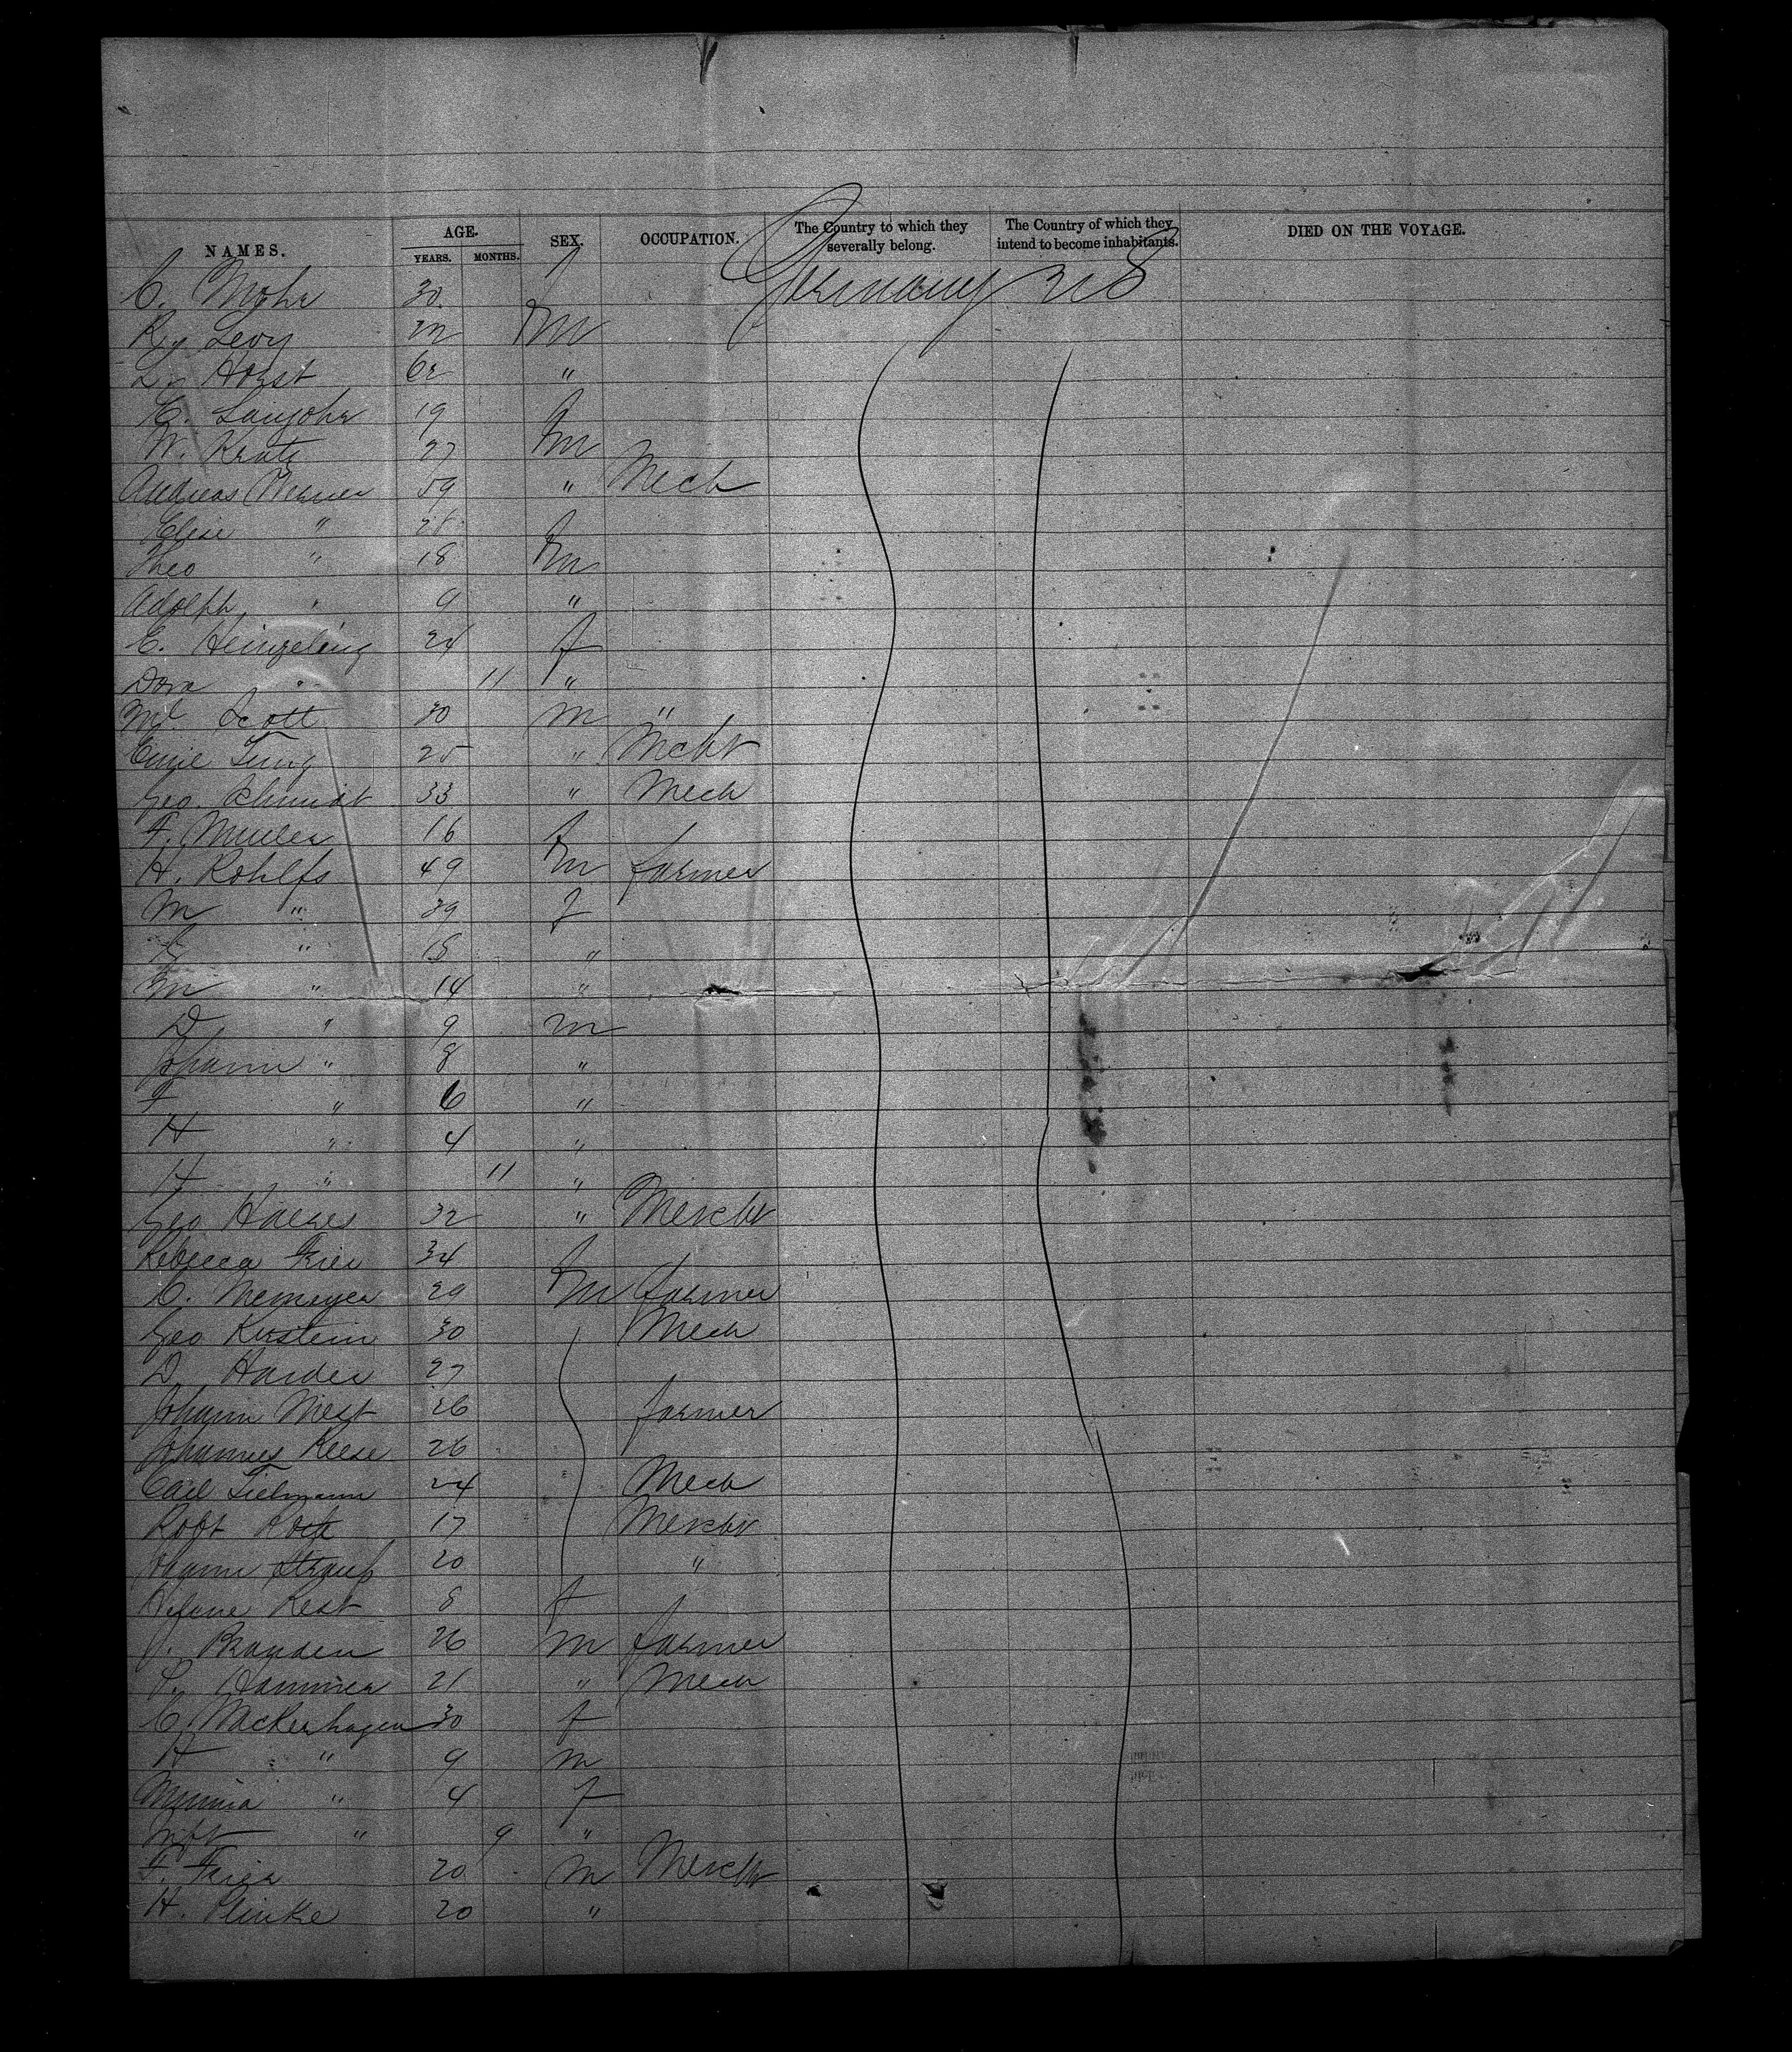 NAMES. AGE. YEARS. MONTHS. SEX. OCCUPATION. The Country to which they severally belong. The Country of which they intend to become inhabitants. DIED ON THE VOYAGE.
C. Mohr 30 f Germany US
R. Levy 22 m
L. Horst 62 "
C. 19 f
W. Kratz 27 m
Andreas Werner 59 " Mech
Elise " f
Theo " 18 m
Adolph " 9 "
E. Heinzeling 24 f
Dora " 11 "
Scott 30 m "
Emil 25 " Mcht
Geo. Schmidt 33 " Mech
F. Muller 16 f
H. Rohlfs 49 m farmer
M " 39 f
C " 18 "
M " 14 "
D " 9 m
Johann " 8 "
F " 6 "
H " 4 "
H " 11 "
Geo 32 " Mercht
Rebecca 34 f
C. Memeyer 29 m farmer
Geo Kirstein 30 Mech
D. Harder 27
Johann 26 farmer
Johannes Reese 26
Carl Tielmann 24 Mech
Robt 17 Mercht
Johann Straub 20 "
8 f
J. 26 m farmer
21 " Mech
C. Wackerhagen 30 f
H " 9 m
Minna " 4 f
" 9 "
F. 20 m Mercht
H. 20 "